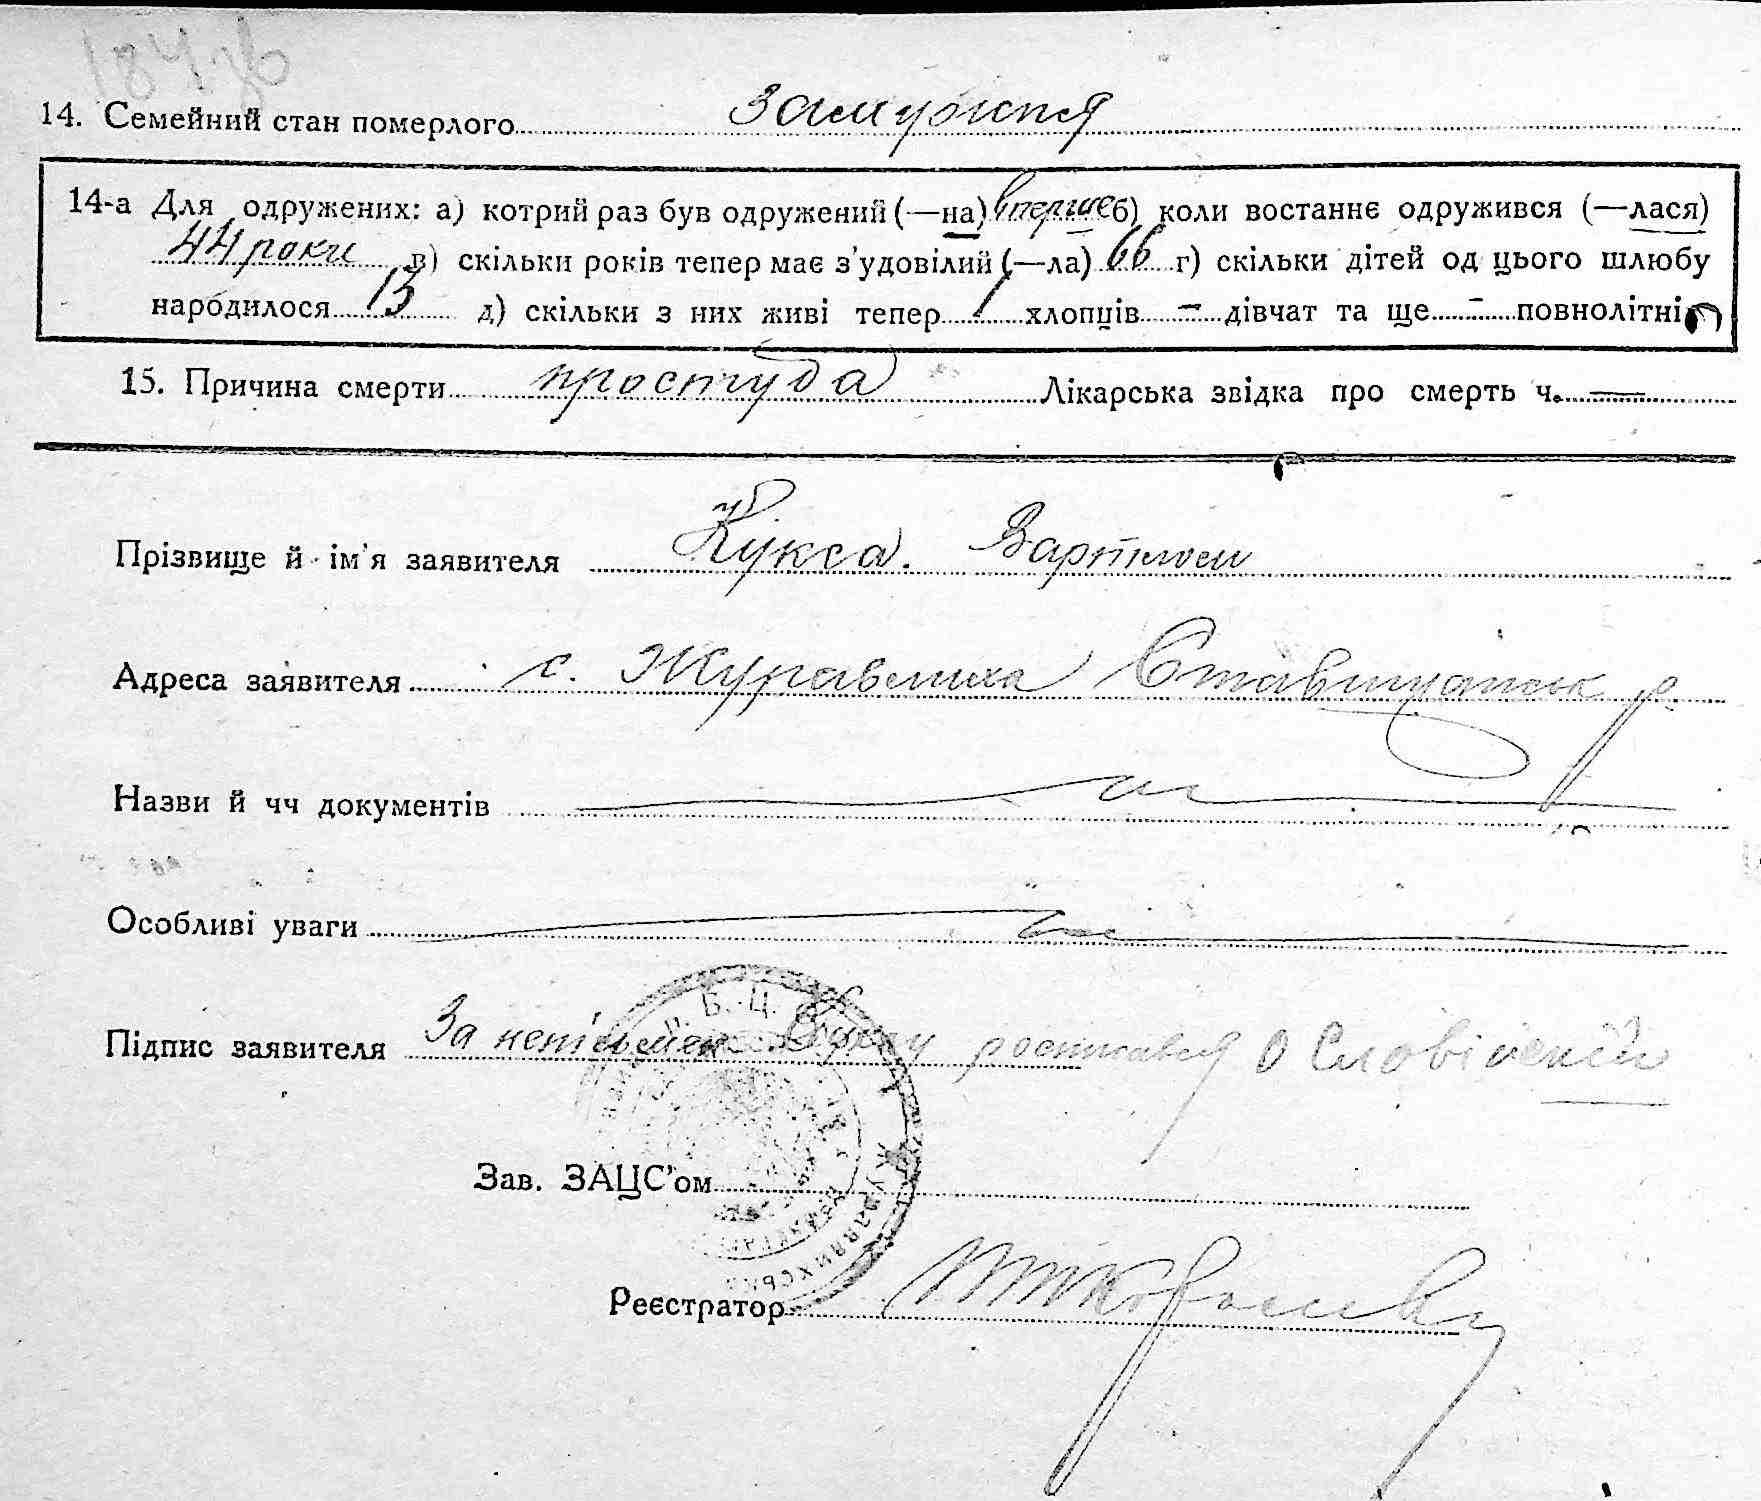 184 зв
14. Семейний стан померлого замужня
14-а Для одружених: а) котрий раз був одружений (—на) вперше б) коли востаннє одружився (—лася)
44 роки в) скільки років тепер має з'удовілий (—ла) 66 г) скільки дітей од цього шлюбу
народилося 13 д) скільки з них живі тепер 1 хлопців - дівчат та ще - повнолітніх
15. Причина смерти простуда Лікарська звідка про смерть ч. —
Прізвище й ім'я заявителя Кукса Вартлом
Адреса заявителя с. Журавлиха Ставищанськ р
Назви й чч документів
Особливі уваги
Підпис заявителя За неписьмен
Зав. ЗАЦС'ом
Реєстратор